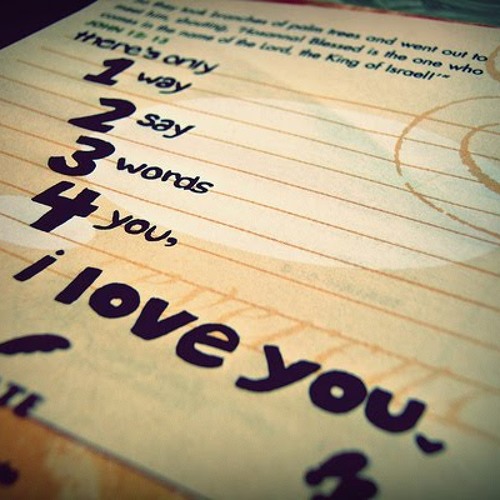 they took branches of palm trees and went out to
meet him, shouting, "Hosanna! Blessed is the one who
comes in the name of the Lord, the King of Israel!"
there's only
1 way
2 say
3 words
4 you,
i love you.